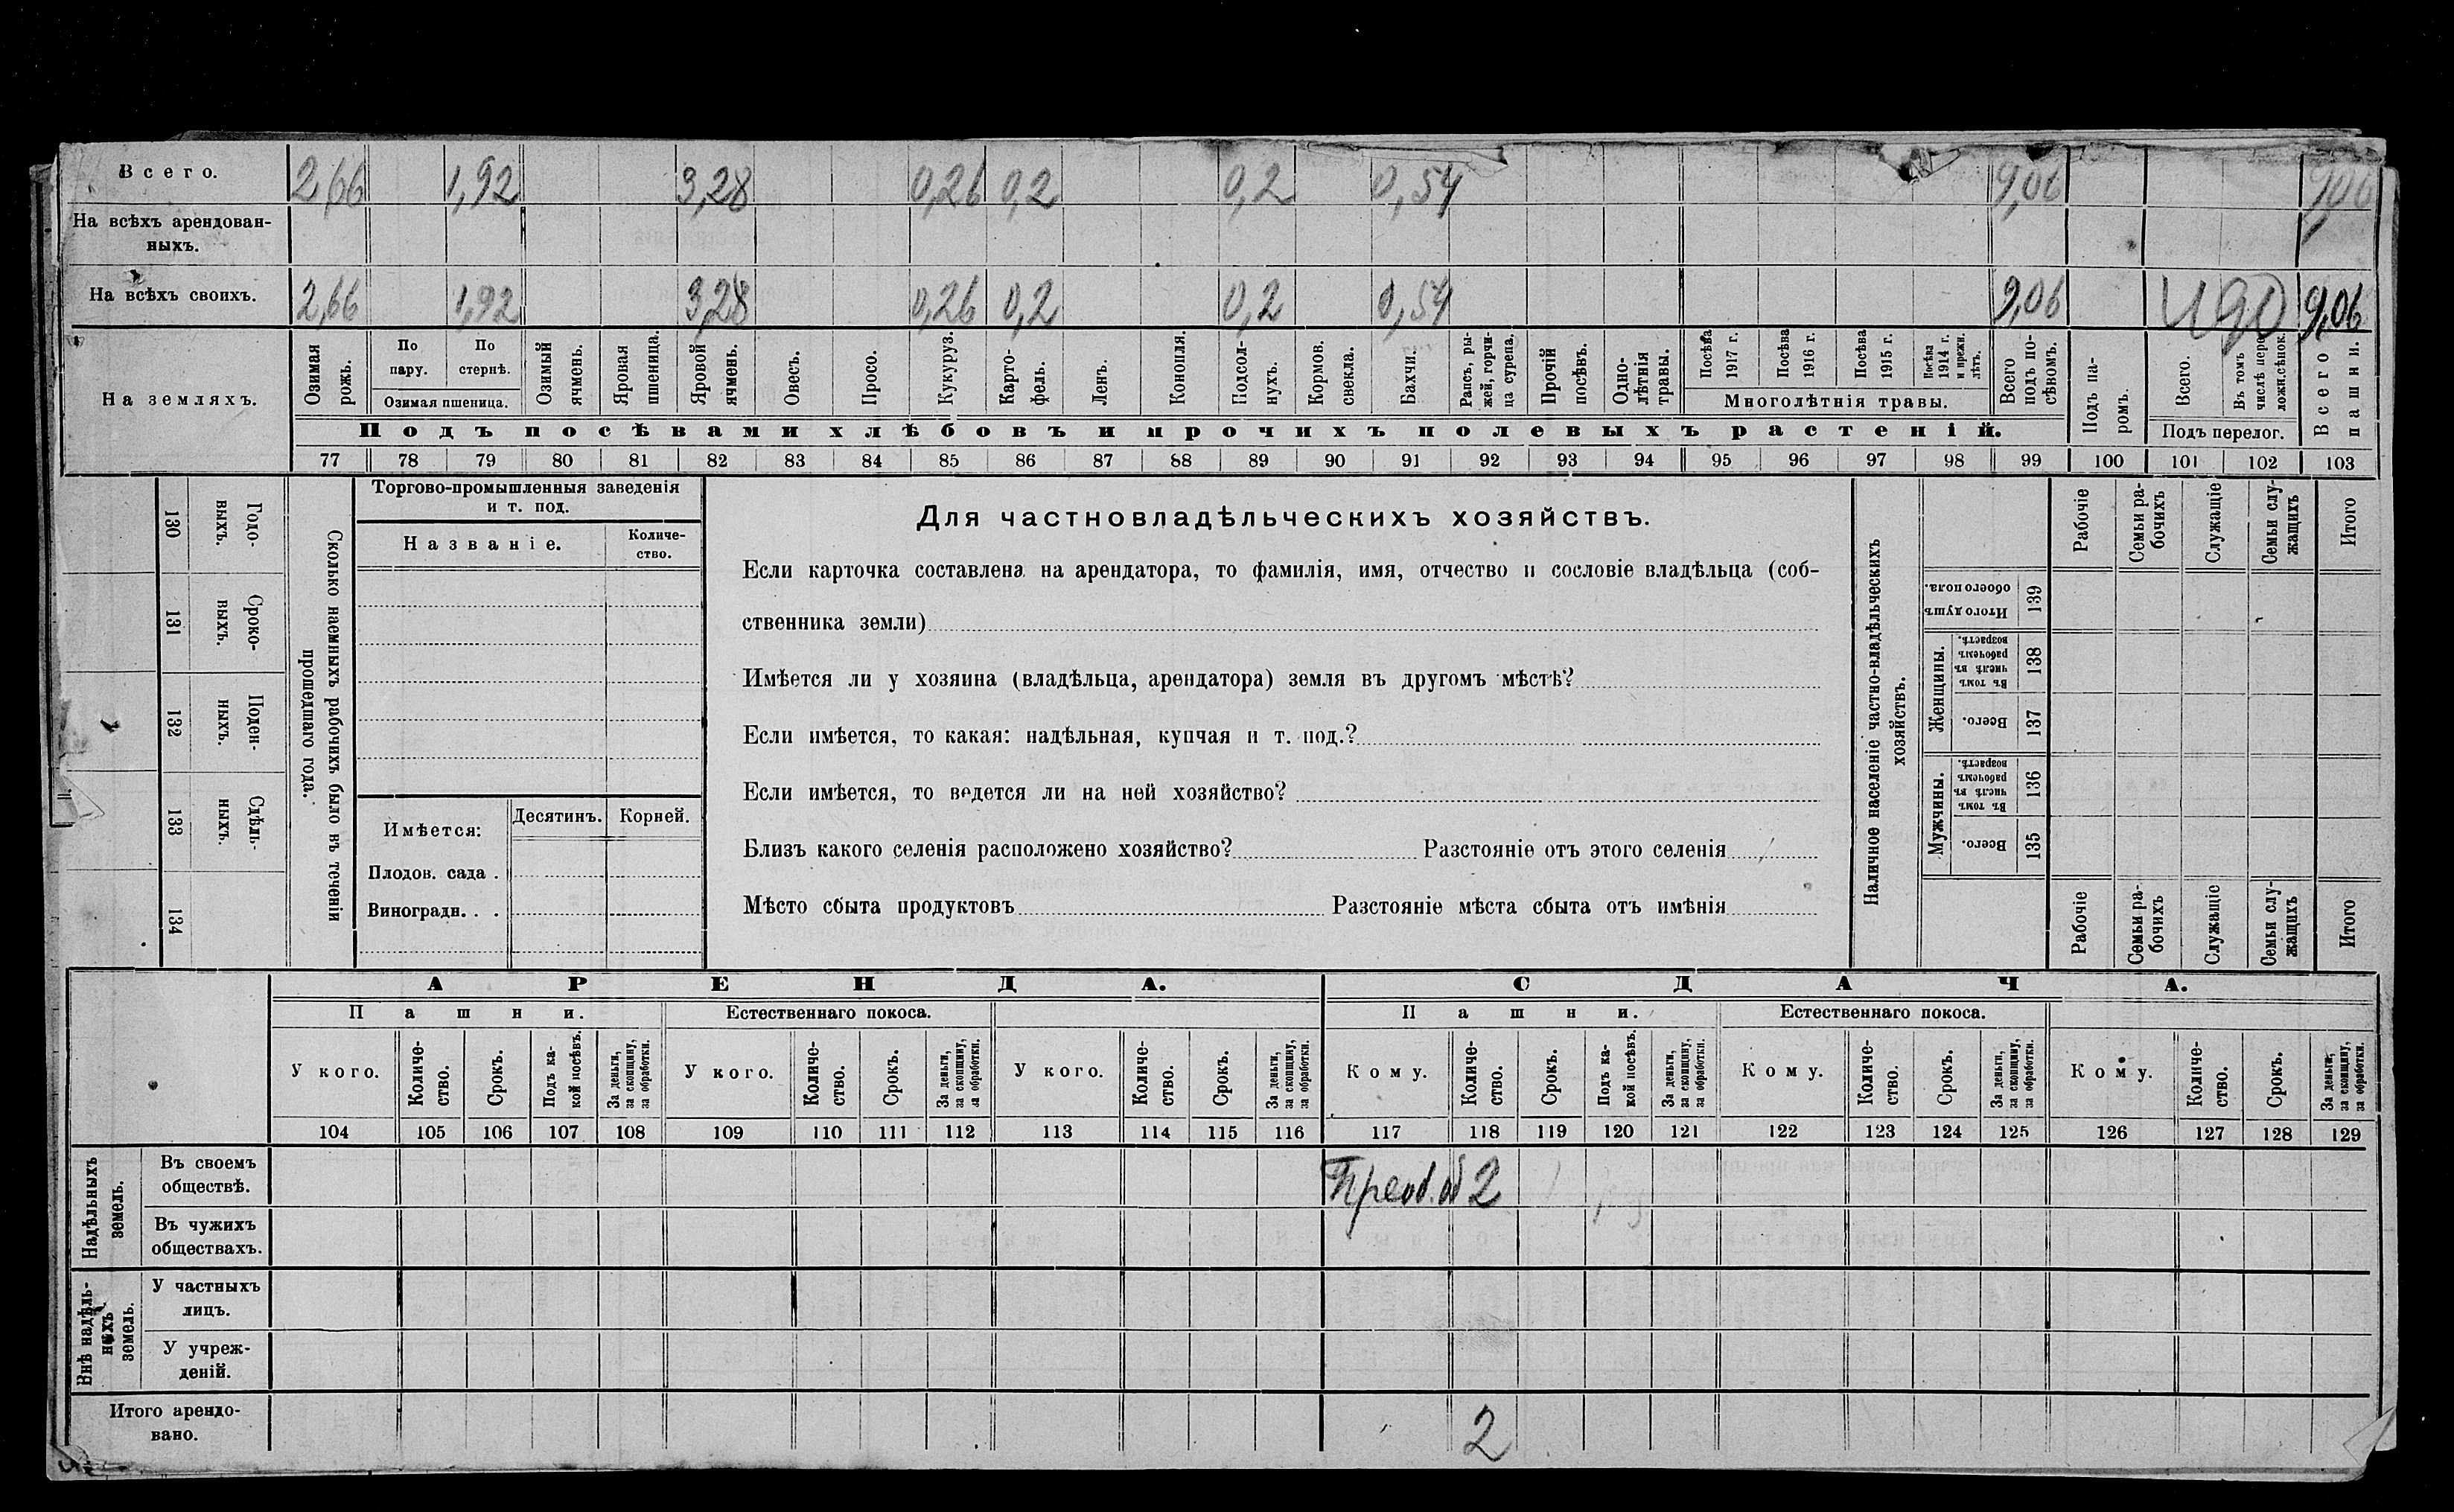 Всего. 2,66 1,92 3,28 0,26 0,2 0,2 0,54 9,06 9,06
На всѣхъ арендован-
ныхъ.
На всѣхъ своихъ. 2,66 1,92 3,28 0,26 0,2 0,2 0,54 9,06 9,06
На земляхъ.
Озимая рожь.
По пару.
По стернѣ.
Озимая пшеница.
Озимый ячмень.
Яровая пшеница.
Яровой ячмень.
Овесъ.
Просо.
Кукуруз.
Карто-
фель.
Ленъ.
Конопля.
Подсол-
нухъ.
Кормов. свекла.
Бахчи.
Рапсъ, ры-
жей, горчи-
ца сурепа.
Прочій посѣвъ.
Одно-
лѣтнія травы.
Посѣва 1917 г.
Посѣва 1916 г.
Посѣва 1915 г.
Посѣва 1914 г. и прежн. лѣтъ.
Многолѣтнія травы.
Всего подъ по-
сѣвомъ.
Подъ па-
ромъ.
Всего.
Въ томъ числѣ пере-
ложн. сѣнок.
Подъ перелог.
Всего пашни.
Подъ посѣвами хлѣбовъ и прочихъ полевыхъ растеній.
77 78 79 80 81 82 83 84 85 86 87 88 89 90 91 92 93 94 95 96 97 98 99 100 101 102 103
130 Годо-
выхъ.
131 Сроко-
выхъ.
132 Поден-
ныхъ.
133 Сдѣль-
ныхъ.
134
Сколько наемныхъ рабочихъ было въ теченіи
прошедшаго года.
Торгово-промышленныя заведенія
и т. под.
Названіе.
Количе-
ство.
Имѣется: Десятинъ. Корней.
Плодов. сада .
Виноградн. . .
Для частновладѣльческихъ хозяйствъ.
Если карточка составлена на арендатора, то фамилія, имя, отчество и сословіе владѣльца (соб-
ственника земли)
Имѣется ли у хозяина (владѣльца, арендатора) земля въ другомъ мѣстѣ?
Если имѣется, то какая: надѣльная, купчая и т. под.?
Если имѣется, то ведется ли на ней хозяйство?
Близъ какого селенія расположено хозяйство? Разстояніе отъ этого селенія
Мѣсто сбыта продуктовъ Разстояніе мѣста сбыта отъ имѣнія
Наличное населеніе частно-владѣльческихъ
хозяйствъ.
Рабочіе
Семьи ра-
бочихъ
Служащіе
Семьи слу-
жащихъ
Итого
Итого душъ обоего пола. 139
Женщины.
Въ томъ числѣ въ рабочемъ возрастѣ. 138
Всего. 137
Мужчины.
Въ томъ числѣ въ рабочемъ возрастѣ. 136
Всего. 135
Рабочіе
Семьи ра-
бочихъ
Служащіе
Семьи слу-
жащихъ
Итого
АРЕНДА. СДАЧА.
Пашни. Естественнаго покоса. Пашни. Естественнаго покоса.
У кого.
Количе-
ство.
Срокъ.
Подъ ка-
кой посѣвъ.
За деньги,
за скопщину,
за обработки.
У кого.
Количе-
ство.
Срокъ.
За деньги,
за скопщину,
за обработки.
У кого.
Количе-
ство.
Срокъ.
За деньги,
за скопщину,
за обработки.
Кому.
Количе-
ство.
Срокъ.
Подъ ка-
кой посѣвъ.
За деньги,
за скопщину,
за обработки.
Кому.
Количе-
ство.
Срокъ.
За деньги,
за скопщину,
за обработки.
Кому.
Количе-
ство.
Срокъ.
За деньги,
за скопщину,
за обработки.
104 105 106 107 108 109 110 111 112 113 114 115 116 117 118 119 120 121 122 123 124 125 126 127 128 129
Надѣльныхъ
земель.
Въ своемъ
обществѣ. 2
Въ чужихъ
обществахъ.
Внѣ надѣль-
ныхъ
земель.
У частныхъ
лицъ.
У учреж-
деній.
Итого арендо-
вано. 2